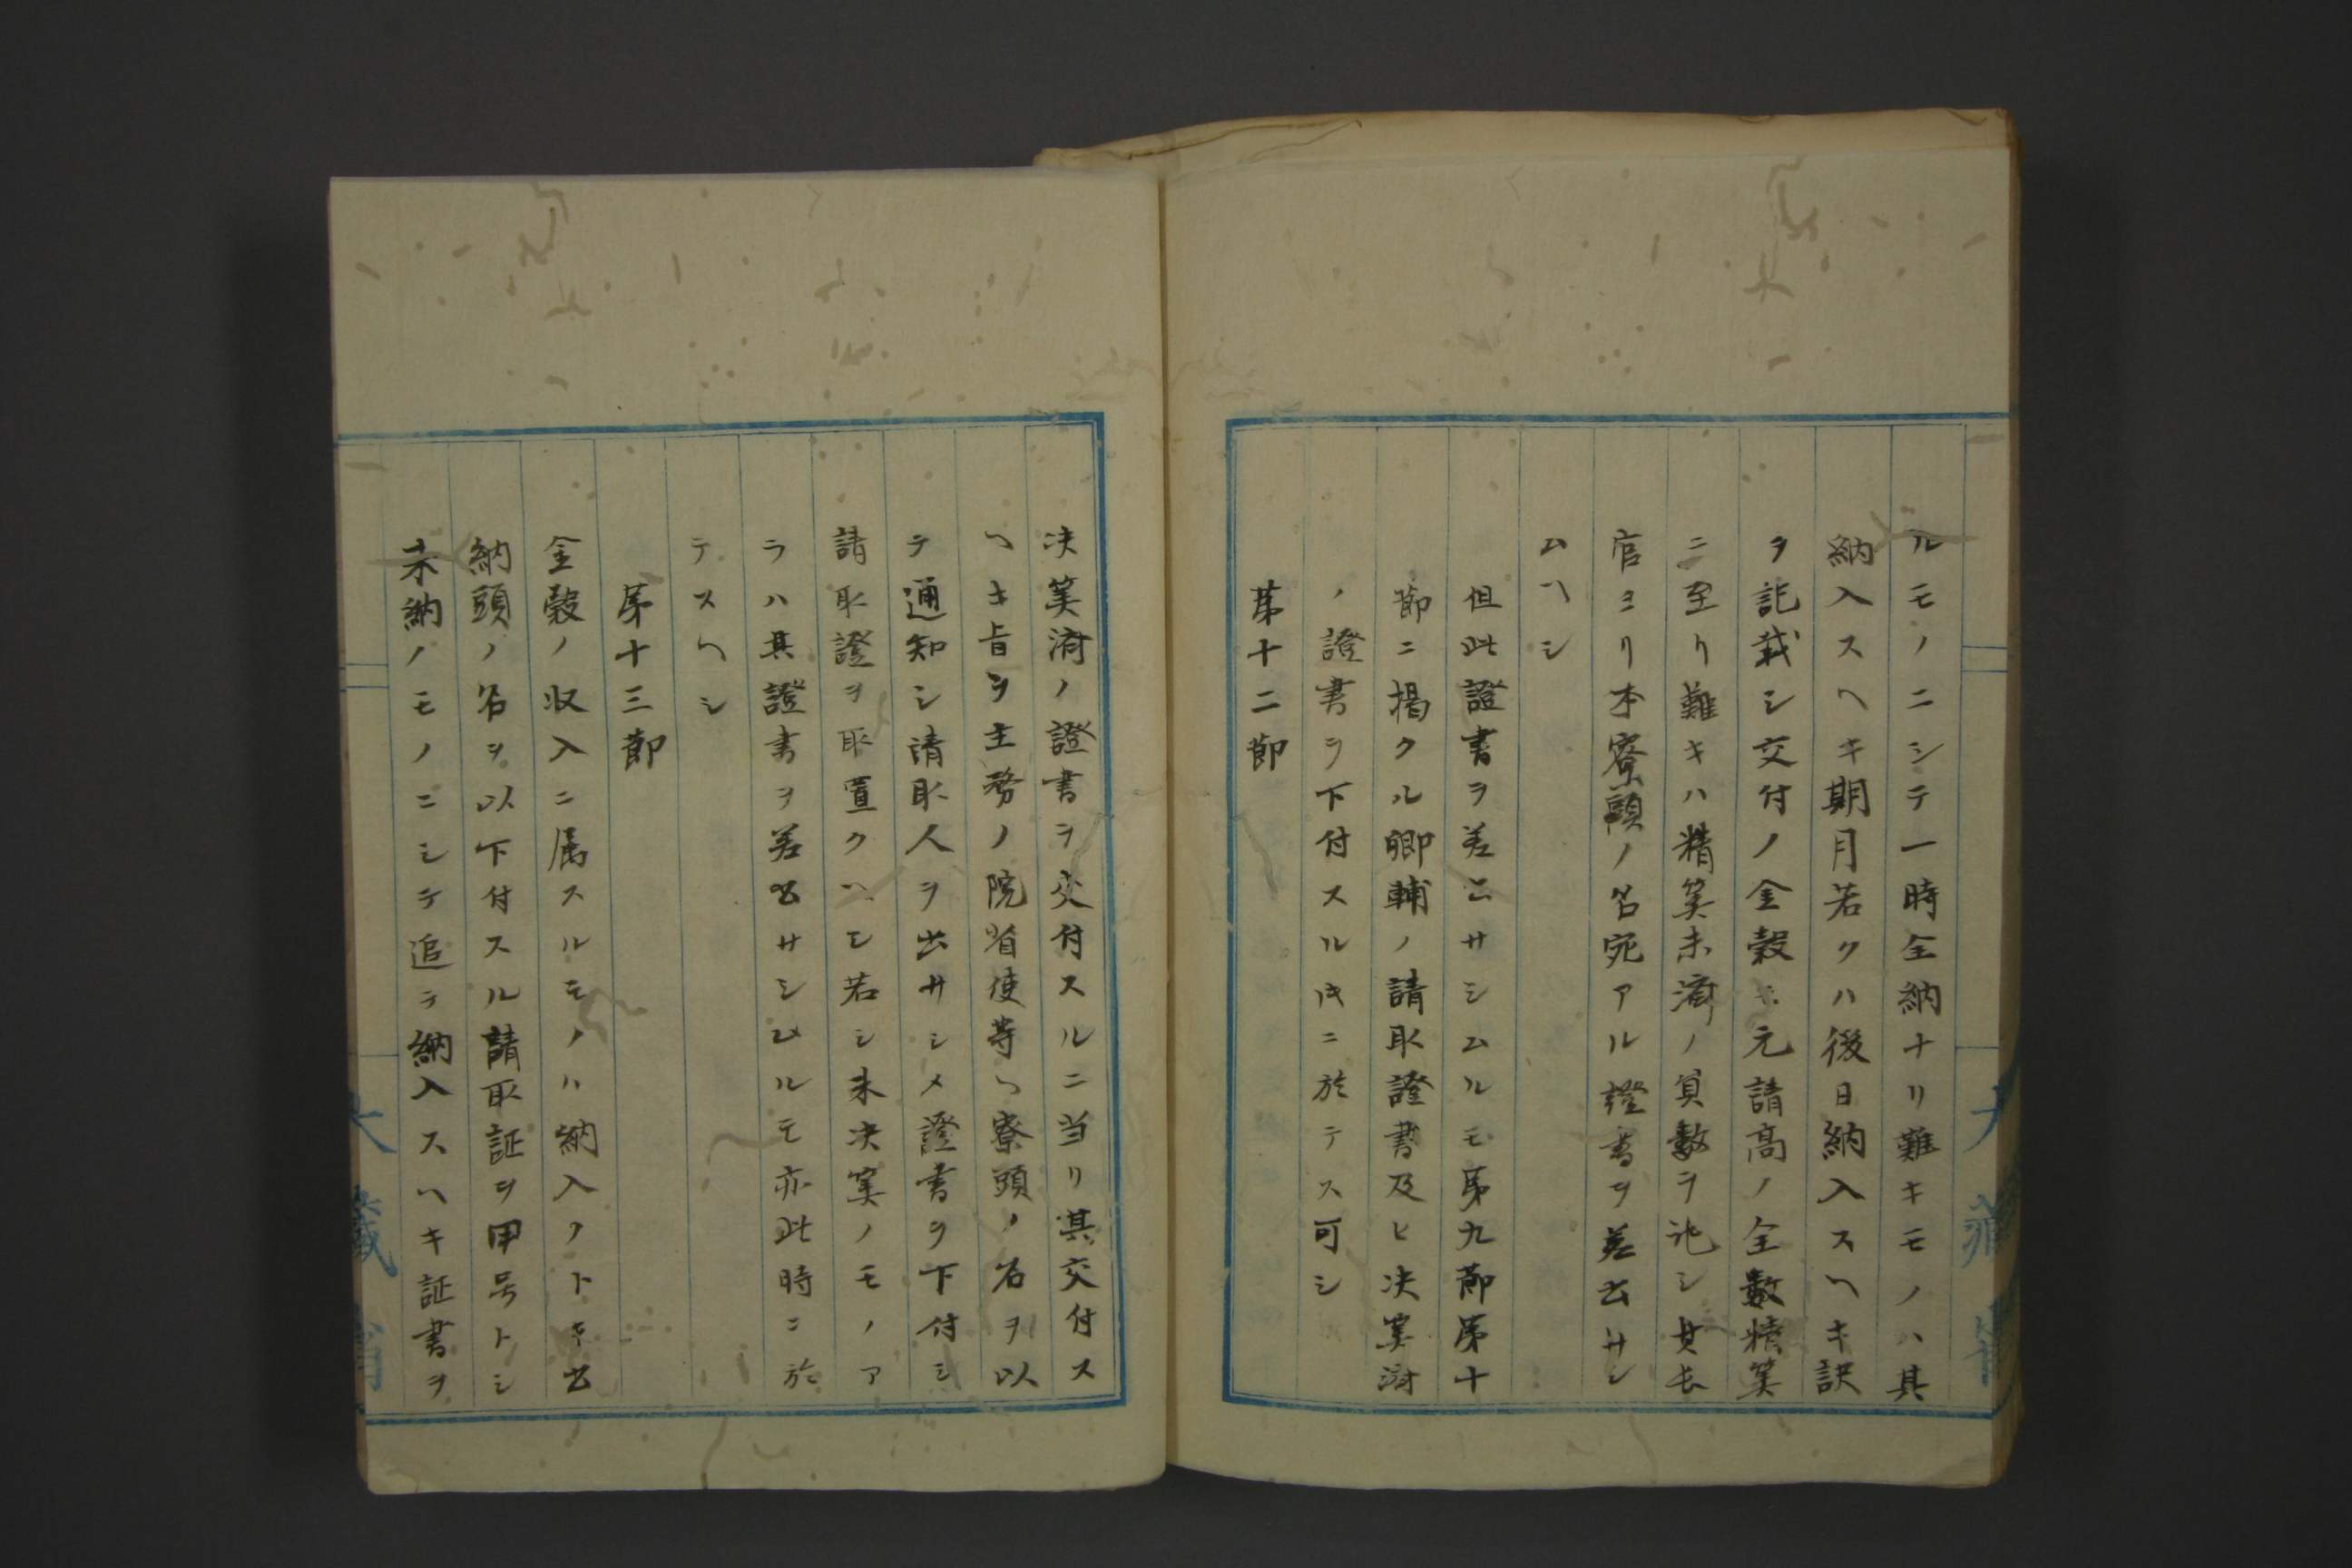 ルモノニシテ一時全納ナリ難キモノハ其
納入スヘキ期月若クハ後日納入スヘキ訳
ヲ記載シ交付ノ金穀ハ元請高ノ全數精筭
ニ至リ難キハ精筭未済ノ員數ヲ記シ其長
官ヨリ本寮頭ノ名宛アル證書ヲ差出サシ
ムヘシ
但此證書ヲ差出サシムルモ第九節第十
節ニ掲クル卿輔ノ請取證書及ヒ决筭済
ノ證書ヲ下付スルトキニ於テス可シ
第十二節
决筭済ノ證書ヲ交付スルニ当リ其交付ス
ヘキ旨ヲ主務ノ院省使等ヘ寮頭ノ名ヲ以
テ通知シ請取人ヲ出サシメ證書ヲ下付シ
請取證ヲ取置クヘシ若シ未决筭ノモノア
ラハ其證書ヲ差出サシムルモ亦此時ニ於
テスヘシ
第十三節
金穀ノ収入ニ属スルモノハ納入ノトキ出
納頭ノ名ヲ以下付スル請取証ヲ甲号トシ
未納ノモノニシテ追テ納入スヘキ証書ヲ
大藏省
大藏省